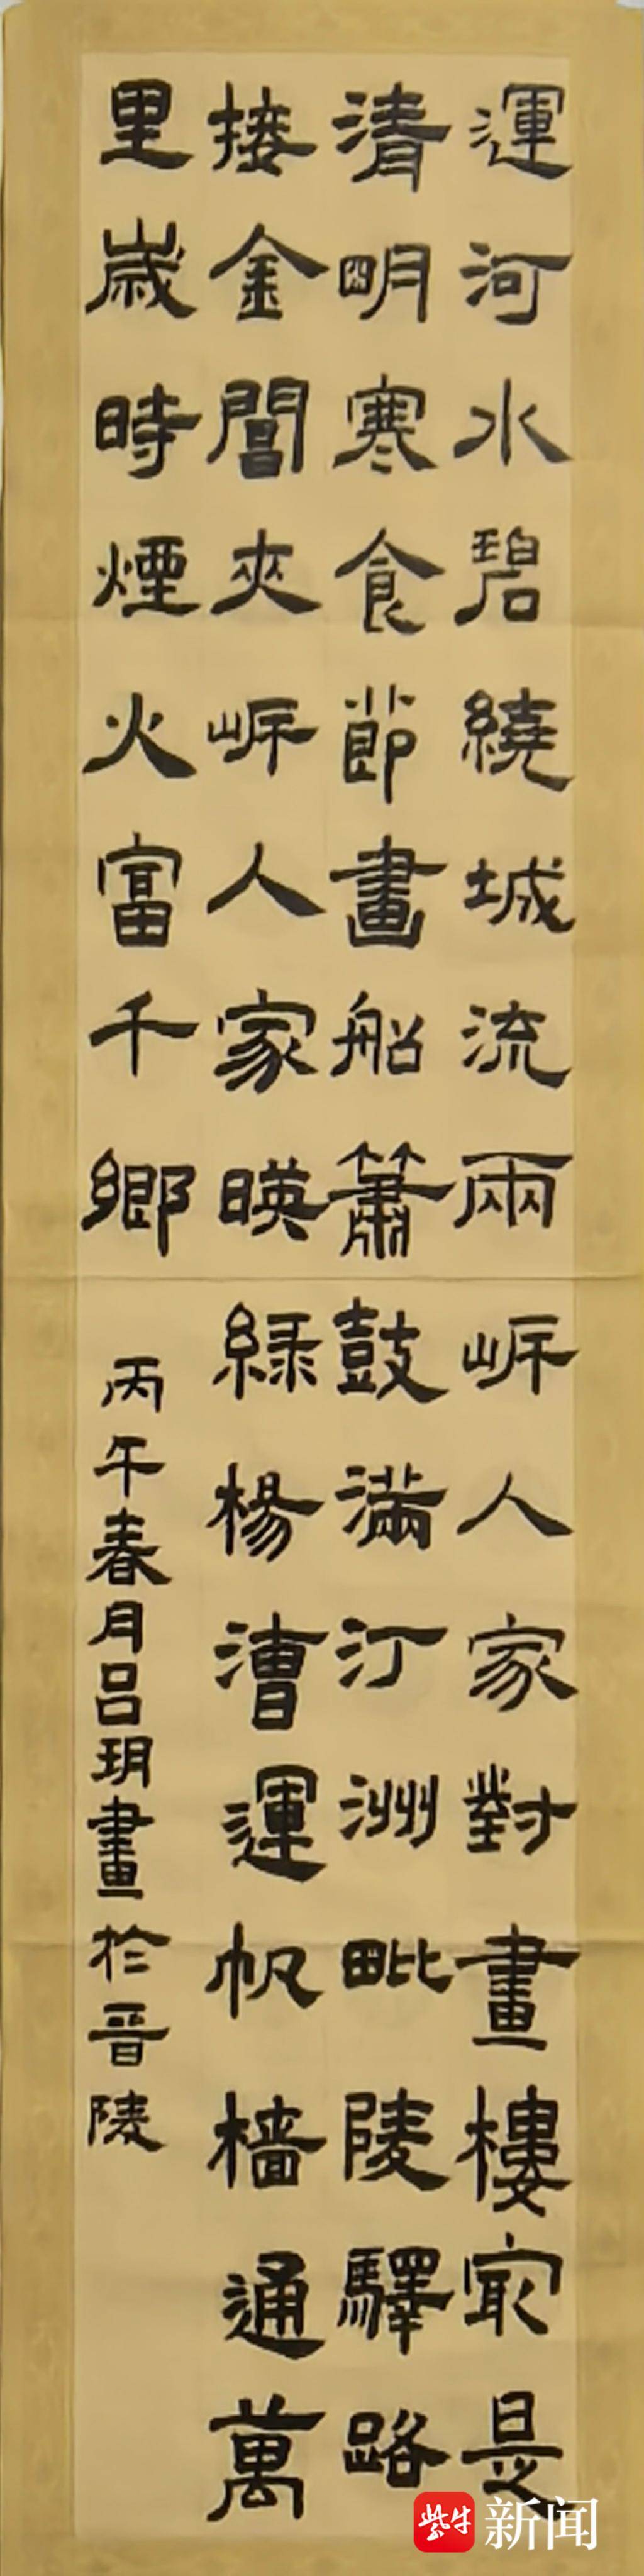 運河水碧繞城流兩岸人家對畫樓冣是
清明寒食節畫船簫鼓滿汀洲毗陵驛路
接金閶夾岸人家暎緑楊漕運帆檣通萬
里歲時煙火富千鄉
丙午春月吕玥畫於晋陵
紫牛新闻